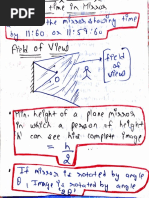 time in Mirror
the mirror showing time
by 11:60 or 11:59:60
Field of View
field
of
view
O
Min. height of a plane mirror
in which a person of height
h can see his complete image
= h/2
If mirror is rotated by angle
θ, Image is rotated by angle
2θ